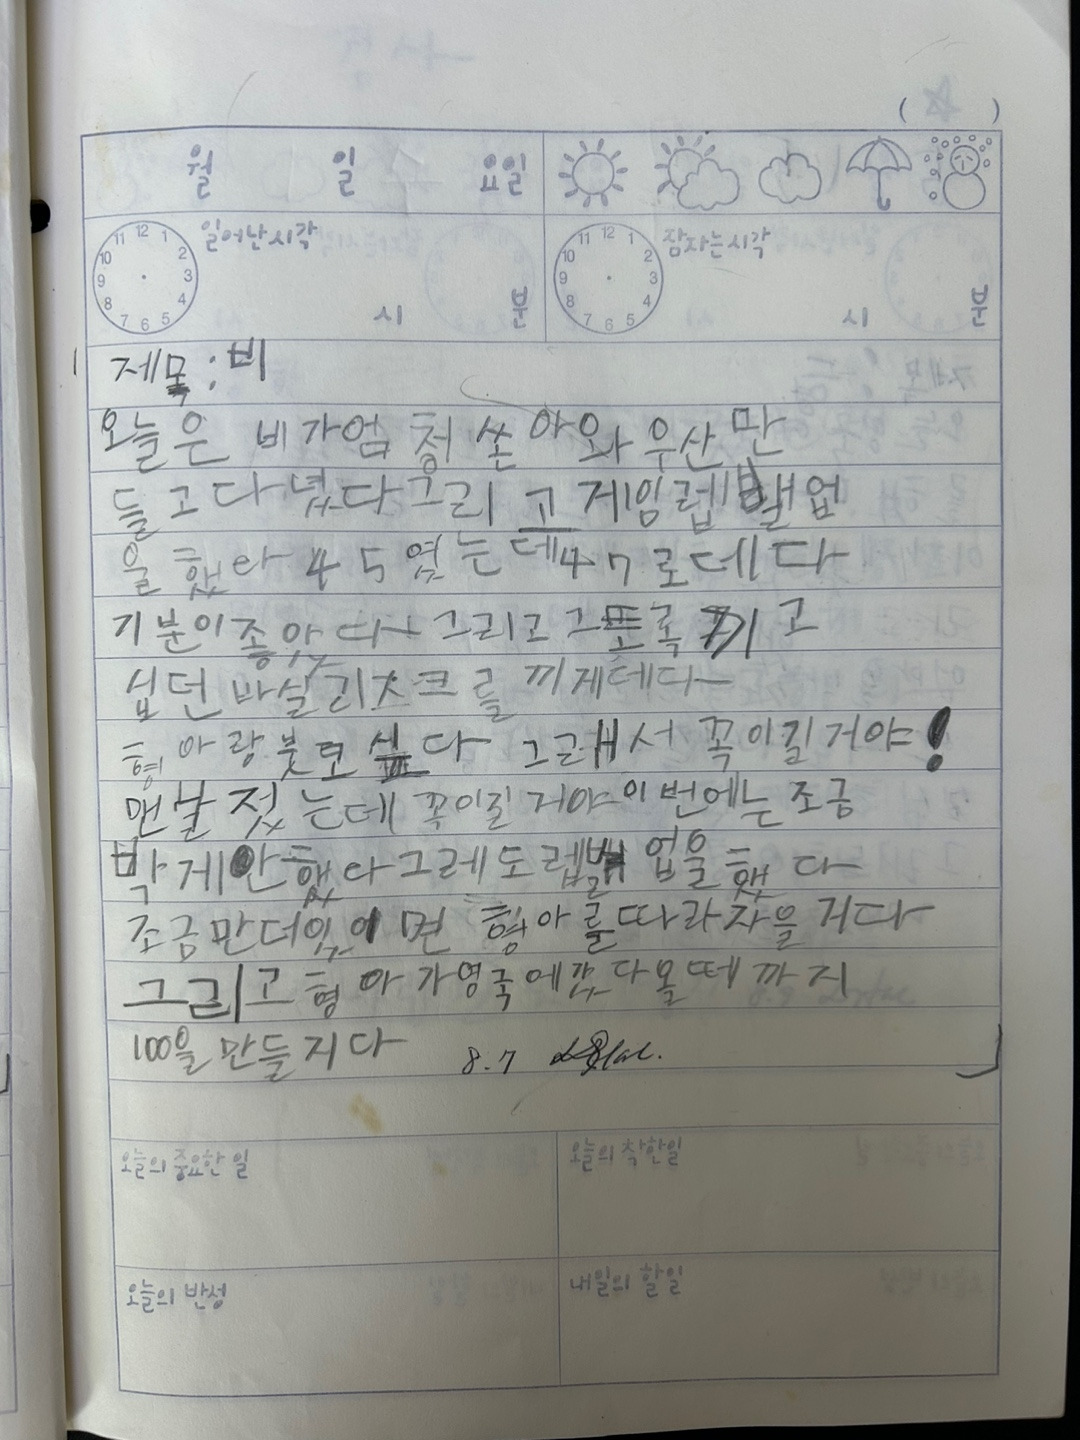 ( )
월 일 요일
일어난시각 잠자는시각
시 분 시 분
제목:비
오늘은 비가엄청 쏟아와 우산만
들고다녔다그리고게임렙밸업
을했다 45였는데47로데다
기분이좋았다 그리고그토록끼고
십던바실리츠크를 끼게데다
형아랑붓도싶다 그래서꼭이길거야!
맨날젓는데꼭이길거야이번에는조금
박게안했다그레도렙밸업을했다
조금만더있이면 형아를따라잡을거다
그리고형아가영국에갔다올떼까지
100을만들지다 8.7
오늘의 중요한 일 오늘의 착한일
오늘의 반성 내일의 할일